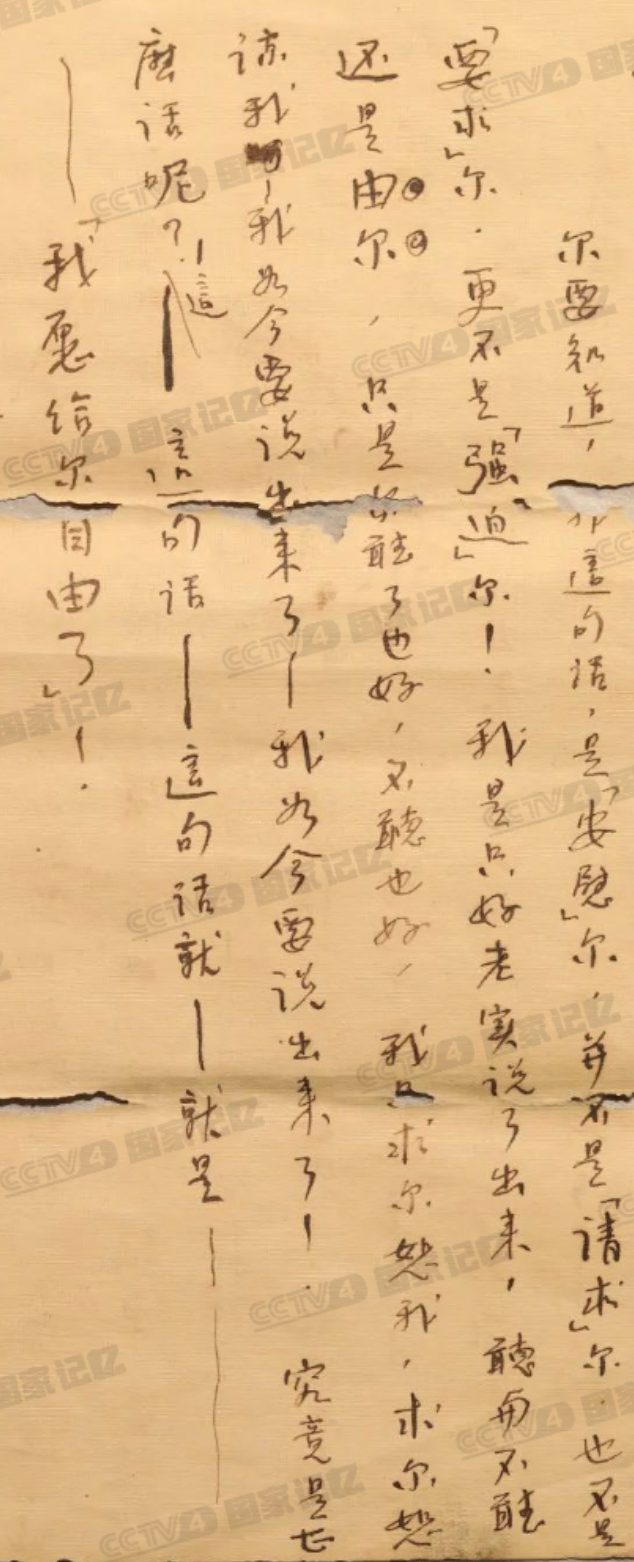 尔要知道，这句话，是「安慰」尔，并不是「请求」尔．也不是
「要求」尔．更不是「强迫」尔！我是只好老实说了出来，聽与不聽
还是由尔，只是尔聽了也好，不聽也好，我只求尔恕我，求尔恕
谅我！我如今要说出来了—我如今要说出来了！．究竟是什
麽话呢？！這
——這句话——這句话就—就是——
——「我愿给尔自由了」！．
CCTV4 国家记忆